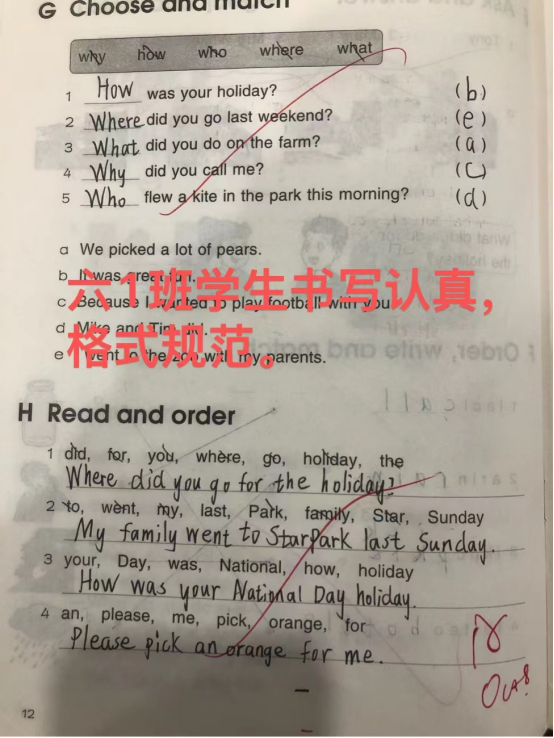 G Choose and match
why how who where what
1 How was your holiday? (b)
2 Where did you go last weekend? (e)
3 What did you do on the farm? (a)
4 Why did you call me? (c)
5 Who flew a kite in the park this morning? (d)
a We picked a lot of pears.
b It was great fun.
c Because I wanted to play football with you.
d Mike and Tim did.
e I went to the zoo with my parents.
六1班学生书写认真，
格式规范。
H Read and order
1 did, for, you, where, go, holiday, the
Where did you go for the holiday?
2 to, went, my, last, Park, family, Star, Sunday
My family went to Star Park last Sunday.
3 your, Day, was, National, how, holiday
How was your National Day holiday.
4 an, please, me, pick, orange, for
Please pick an orange for me.
12